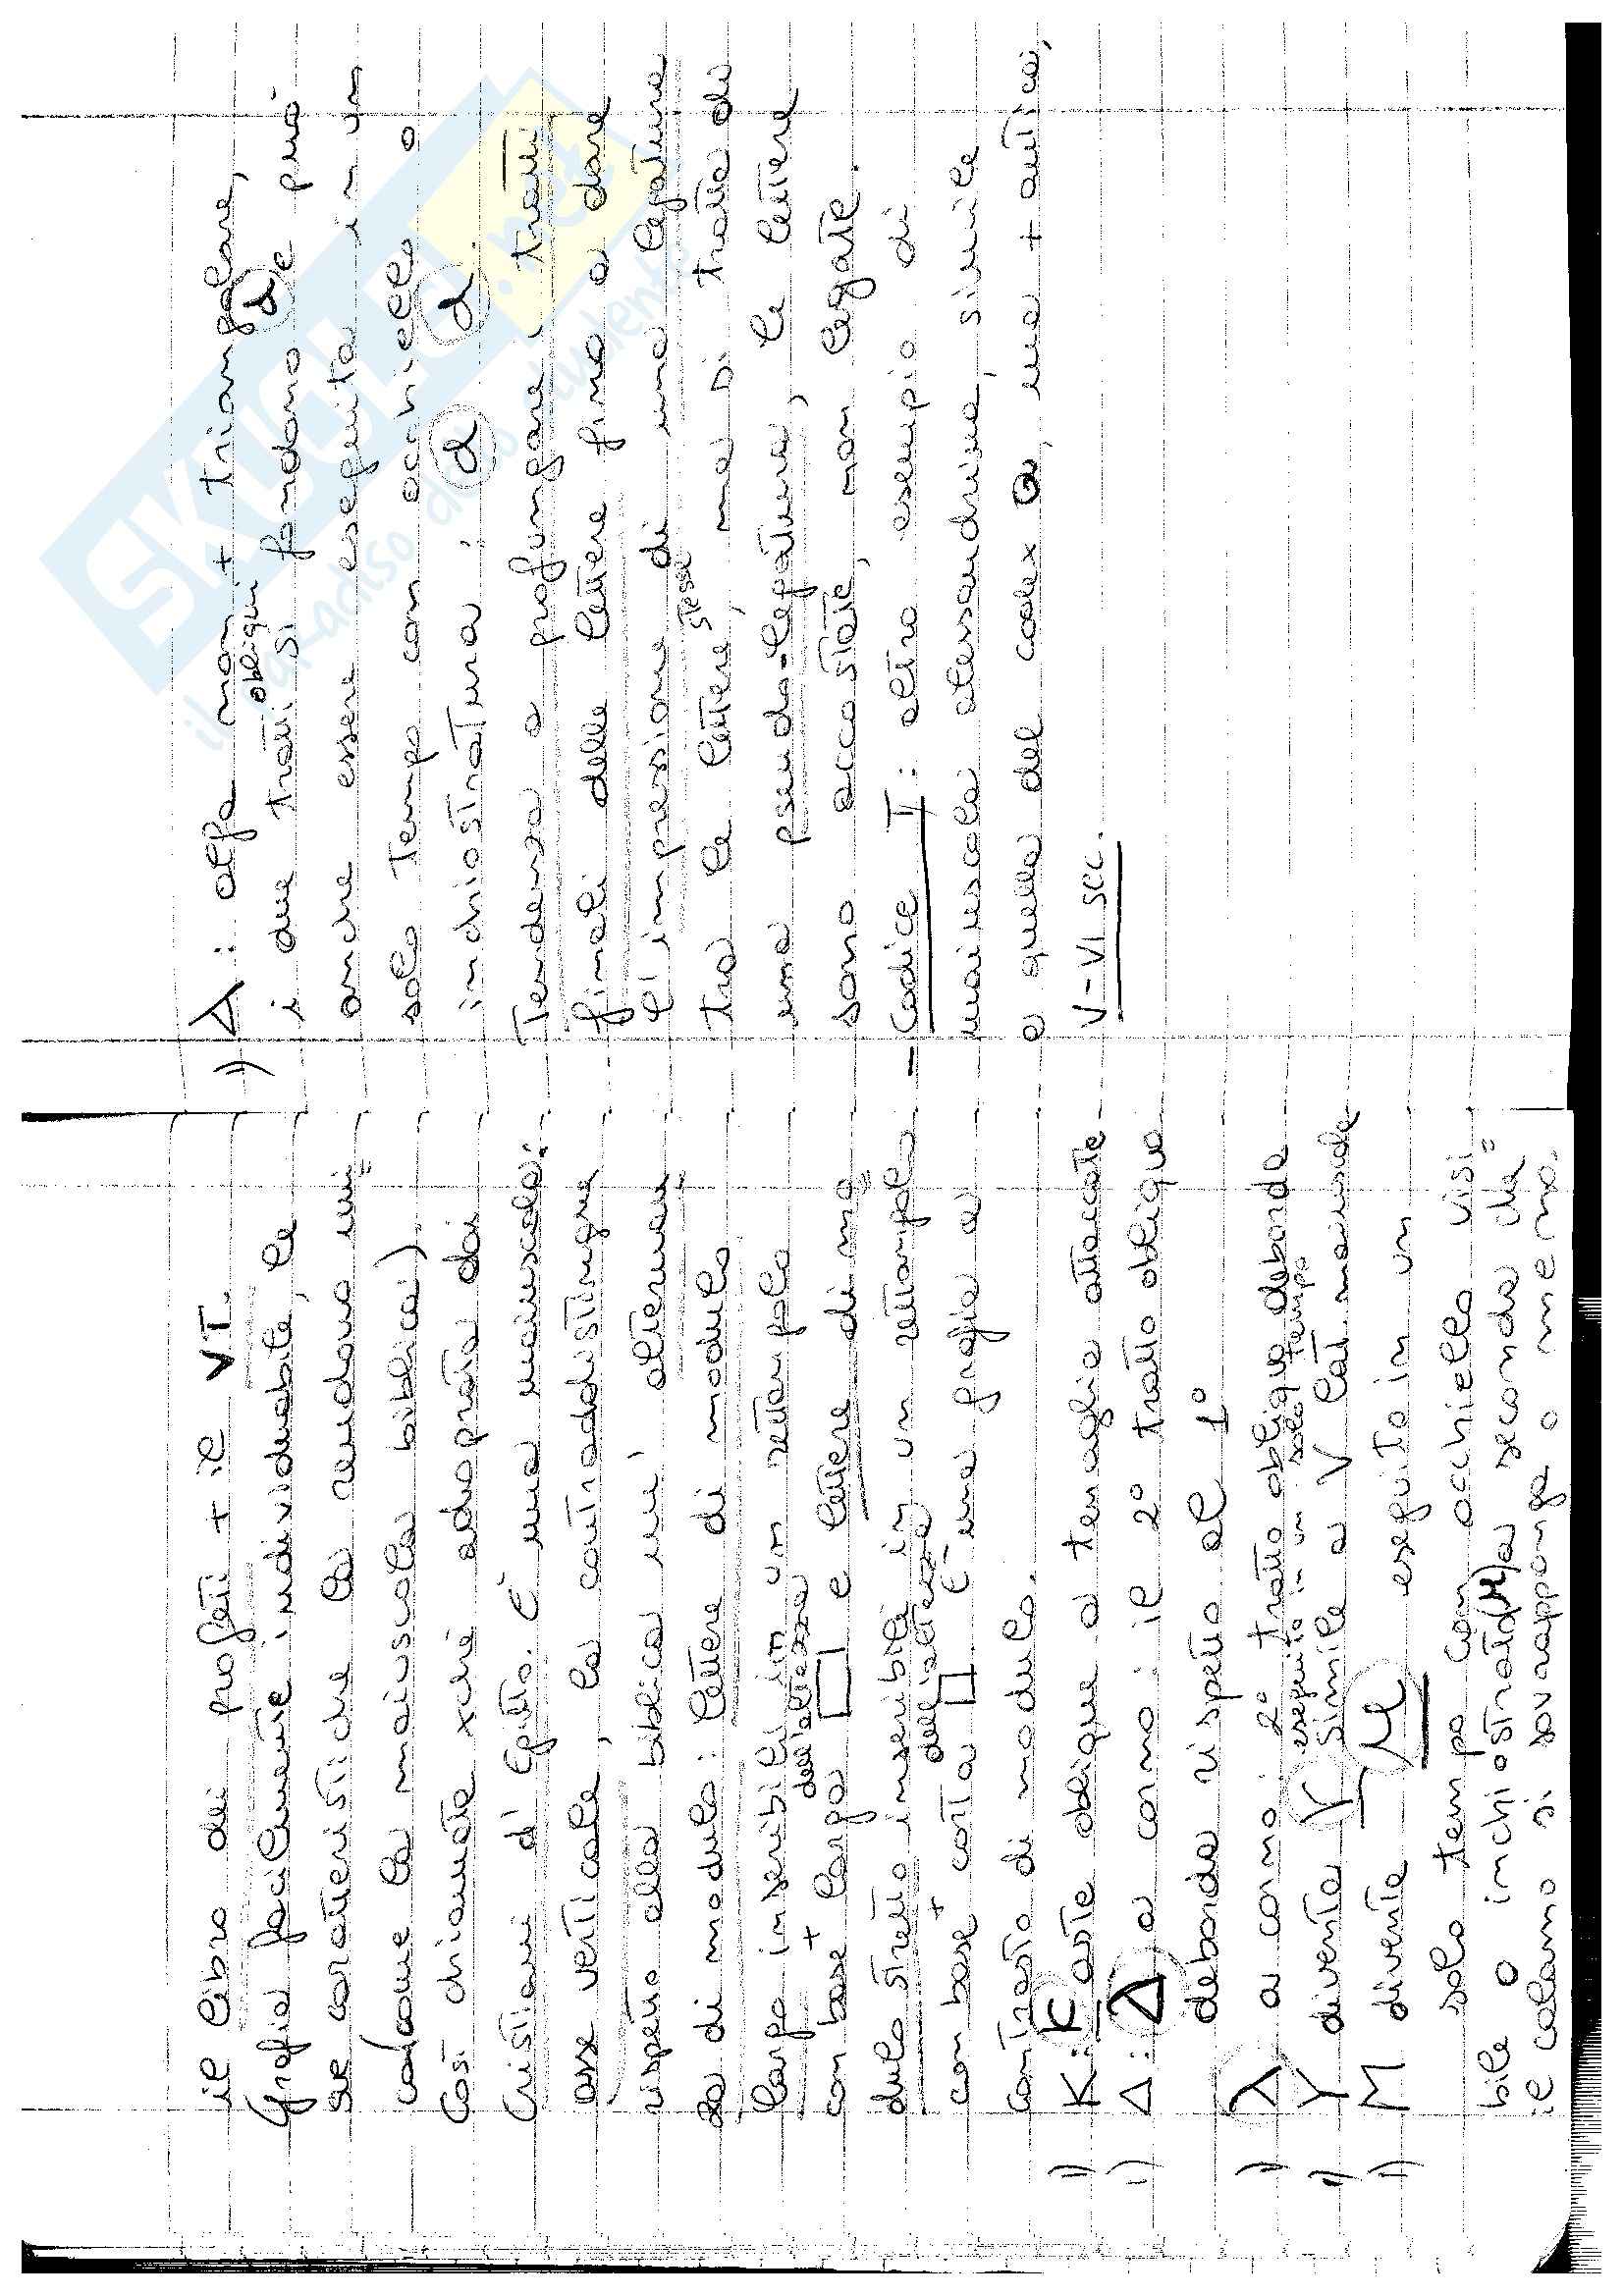 il libro dei profeti + il VT.
Grafia facilmente individuabile, le
sue caratteristiche la rendono uni=
ca (come la maiuscola biblica).
Così chiamata xché adoprata dai
Cristiani d'Egitto. È una maiuscola:
asse verticale, la contraddistingue
rispetto alla biblica un' alternan=
za di modulo: lettere di modulo
largo inscribili in un rettangolo
con base + larga dell'altezza ▭ e lettere di mo=
dulo stretto inscribili in un rettangolo
con base + corta dell'altezza ▯. È una grafia a
contrasto di modulo.
)) K: K aste oblique a tenaglia attaccate
)) Δ: Δ a corno: il 2° tratto obliquo
deborda rispetto al 1°
)) λ a corno: 2° tratto obliquo deborda
)) Y diventa Y eseguito in un solo tempo simile a V lat. maiuscola
)) M diventa μ eseguito in un
solo tempo con occhiello visi=
bile o inchiostrato (μ) a seconda che
il calamo si sovrapponga o meno.
)) A: alfa non + triangolare,
i due tratti obliqui si fondono (α) e può
anche essere eseguita in un
solo tempo con occhiello o
inchiostratura: (α) (α).
Tendenza a prolungare i tratti
finali delle lettere fino a dare
l'impressione di una legatura
tra le lettere stesse, ma si tratta di
una pseudo-legatura, le lettere
sono accostate, non legate.
- Codice T: altro esempio di
maiuscola alessandrina, simile
a quella del codex Q, ma + antica,
V-VI sec.
SKUOLA.net
il paradiso dello studente